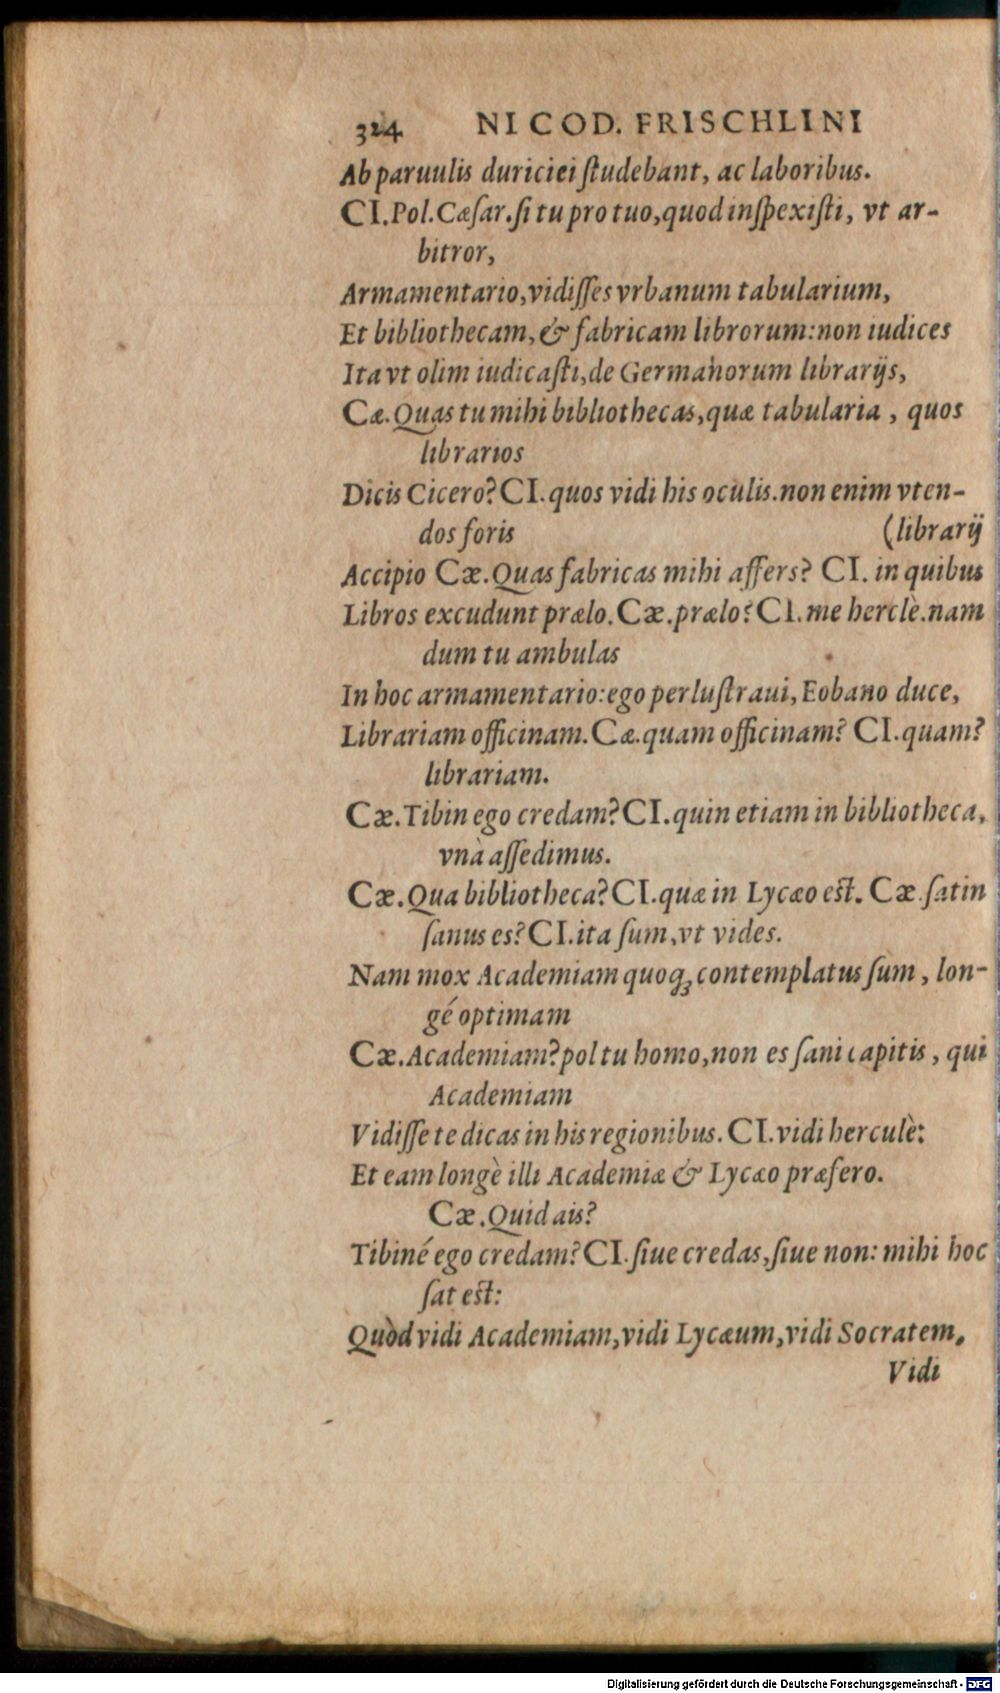 324 NICOD. FRISCHLINI
Ab paruulis duriciei ſtudebant, ac laboribus.
CI. Pol. Cæſar. ſi tu pro tuo, quod inſpexiſti, vt ar-
bitror,
Armamentario, vidiſſes vrbanum tabularium,
Et bibliothecam, & fabricam librorum: non iudices
Ita vt olim iudicaſti, de Germanorum librarijs,
Cæ. Quas tu mihi bibliothecas, quæ tabularia, quos
librarios
Dicis Cicero? CI. quos vidi his oculis. non enim vten-
dos foris (librarij
Accipio Cæ. Quas fabricas mihi affers? CI. in quibus
Libros excudunt prælo. Cæ. prælo? CI. me herclè. nam
dum tu ambulas
In hoc armamentario: ego perluſtraui, Eobano duce,
Librariam officinam. Cæ. quam officinam? CI. quam?
librariam.
Cæ. Tibin ego credam? CI. quin etiam in bibliotheca,
vnà aſſedimus.
Cæ. Qua bibliotheca? CI. quæ in Lycæo eſt. Cæ. ſatin
ſanus es? CI. ita ſum, vt vides.
Nam mox Academiam quoqꝫ contemplatus ſum, lon-
gé optimam
Cæ. Academiam? pol tu homo, non es ſani capitis, qui
Academiam
Vidiſſe te dicas in his regionibus. CI. vidi herculè:
Et eam longè illi Academiæ & Lycæo præfero.
Cæ. Quid ais?
Tibiné ego credam? CI. ſiue credas, ſiue non: mihi hoc
ſat eſt:
Quòd vidi Academiam, vidi Lycæum, vidi Socratem,
Vidi
Digitalisierung gefördert durch die Deutsche Forschungsgemeinschaft - DFG